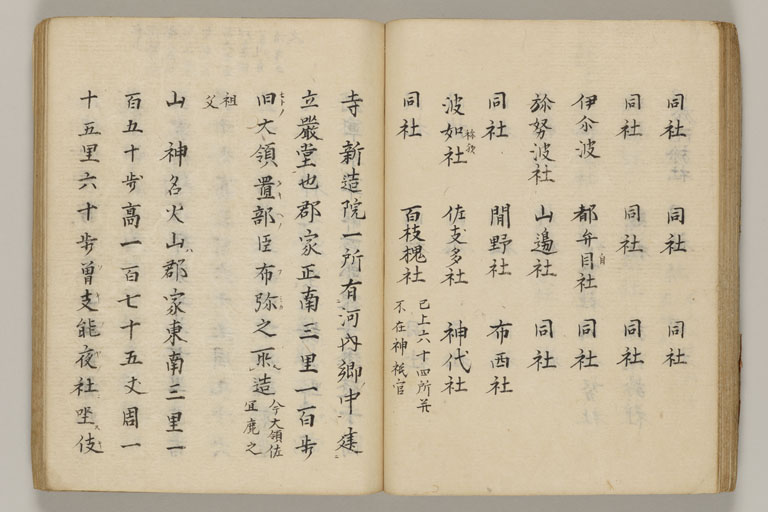 同社 同社 同社
同社 同社 同社
伊尒波 都弁目社 同社
旀努波社 山邊社 同社
同社 間野社 布西社
波如社 佐支多社 神代社
同社 百枝槐社 已上六十四所並
不在神祇官
寺 新造院一所有河内郷中建
立嚴堂也郡家正南三里一百歩
旧大領置部臣布弥之所造 今大領佐
宜麿之
祖
父
山 神名火山郡家東南三里一
百五十歩高一百七十五丈周一
十五里六十歩曽支能夜社坐伎